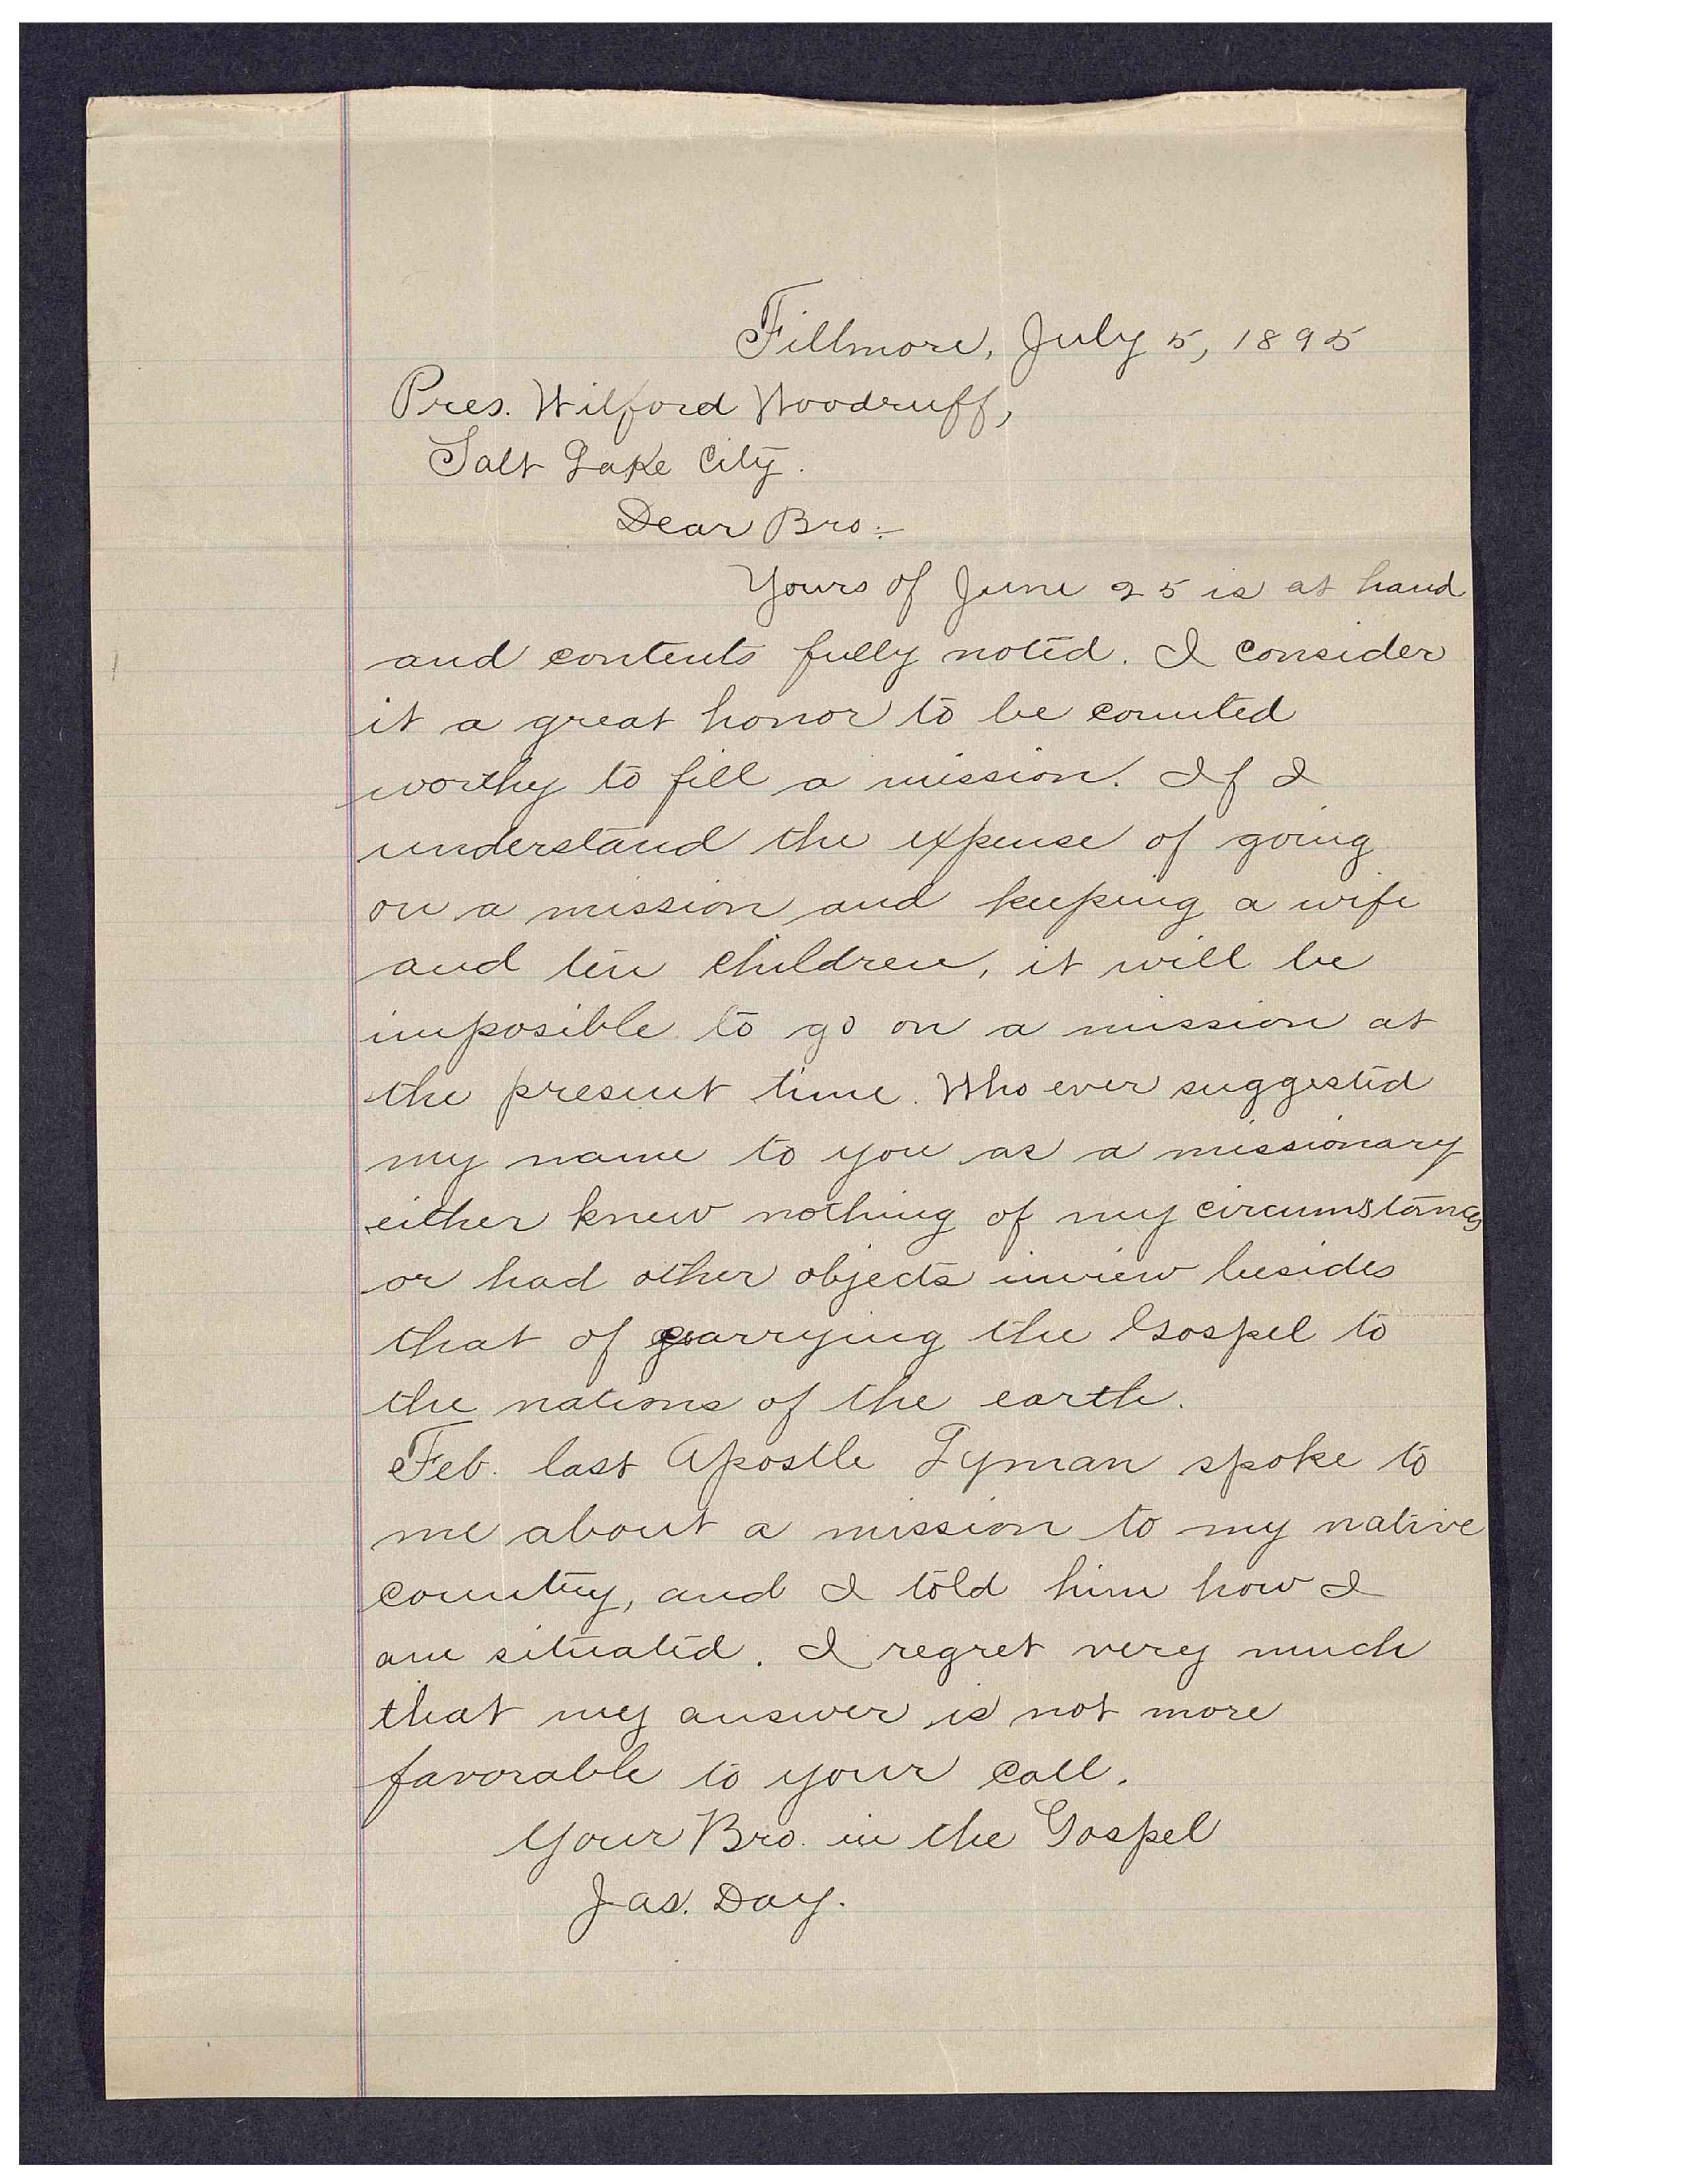 Fillmore, July 5, 1895
Pres. Wilford Woodruff,
Salt Lake City.
Dear Bro:-
Yours of June 25 is at hand
and contents fully noted. I consider
it a great honor to be counted
worthy to fill a mission. If I
understand the expense of going
on a mission and keeping a wife
and ten children, it will be
imposible to go on a mission at
the present time. Who ever suggested
my name to you as a missionary
either knew nothing of my circumstances
or had other objects inview besides
that of carrying the Gospel to
the nations of the earth.
Feb. last Apostle Lyman spoke to
me about a mission to my native
country, and I told him how I
am situated. I regret very much
that my answer is not more
favorable to your call.
Your Bro. in the Gospel
Jas. Day.